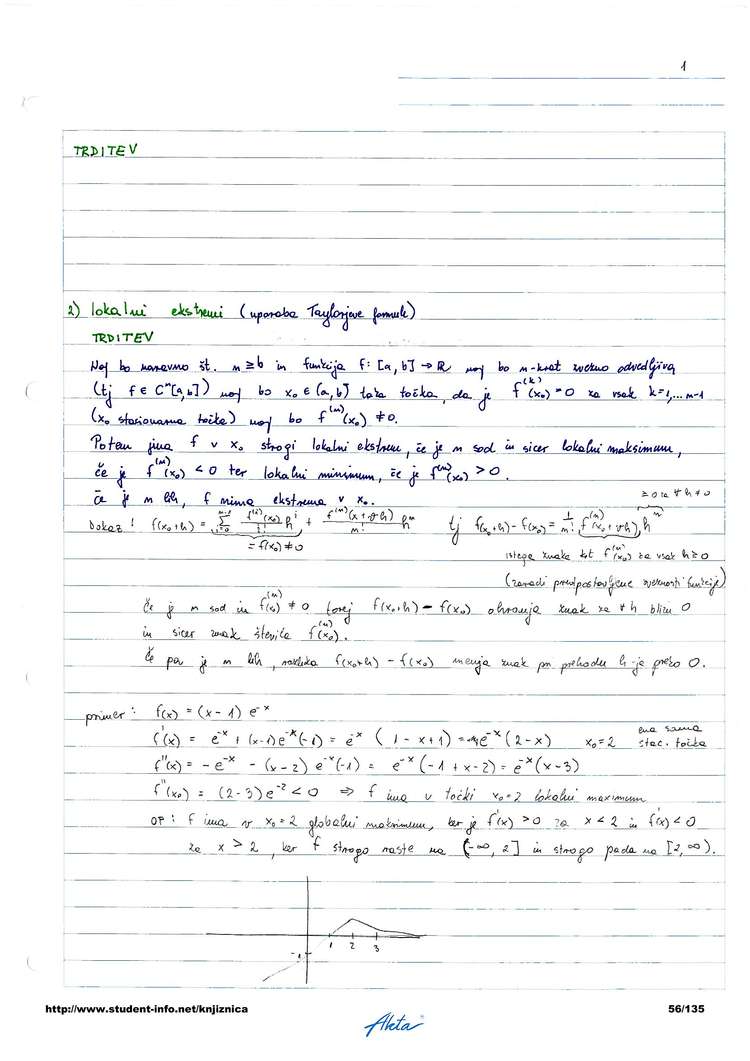 1
TRDITEV
2) lokalni ekstremi (uporaba Taylorjeve formule)
TRDITEV
Naj bo naravno št. n ≥ b in funkcija f: [a, b] → ℝ naj bo n-krat zvezno odvedljiva
(tj f ∈ Cⁿ[a,b]) naj bo x₀ ∈ (a, b) taka točka, da je f⁽ᵏ⁾(x₀) = 0 za vsak k=1,... n-1
(x₀ stacionarna točka) naj bo f⁽ⁿ⁾(x₀) ≠ 0.
Potem ima f v x₀ strogi lokalni ekstrem, če je n sod in sicer lokalni maksimum,
če je f⁽ⁿ⁾(x₀) < 0 ter lokalni minimum, če je f⁽ⁿ⁾(x₀) > 0.
če je n lih, f nima ekstrema v x₀.
Dokaz! f(x₀+h) = Σ_{i=0}^{n-1} f⁽ⁱ⁾(x₀)/i! hⁱ + f⁽ⁿ⁾(x+ϑh)/n! hⁿ tj f(x₀+h) - f(x₀) = 1/n! f⁽ⁿ⁾(x₀+ϑh) hⁿ
= f(x₀) ≠ 0
istega znaka kot f⁽ⁿ⁾(x₀) za vsak h≥0
(zaradi predpostavljene zveznosti funkcije)
Če je n sod in f⁽ⁿ⁾(x₀) ≠ 0 torej f(x₀+h) - f(x₀) ohranja znak za ∀ h blizu 0
in sicer znak števila f⁽ⁿ⁾(x₀).
Če pa je n lih, razlika f(x₀+h) - f(x₀) menja znak pri prehodu h-ja preko 0.
primer: f(x) = (x-1) e^-x
f'(x) = e^-x + (x-1)e^-x(-1) = e^-x (1 - x+1) = e^-x (2-x) x₀=2 ena sama stac. točka
f''(x) = - e^-x - (x-2) e^-x(-1) = e^-x(-1 + x-2) = e^-x(x-3)
f''(x₀) = (2-3)e^-2 < 0 ⇒ f ima v točki x₀=2 lokalni maximum
OP: f ima v x₀=2 globalni maksimum, ker je f'(x) > 0 za x < 2 in f'(x) < 0
za x > 2, ker f strogo raste na (-∞, 2] in strogo pada na [2, ∞).
1 2 3
-1
http://www.student-info.net/knjiznica
56/135
Akta